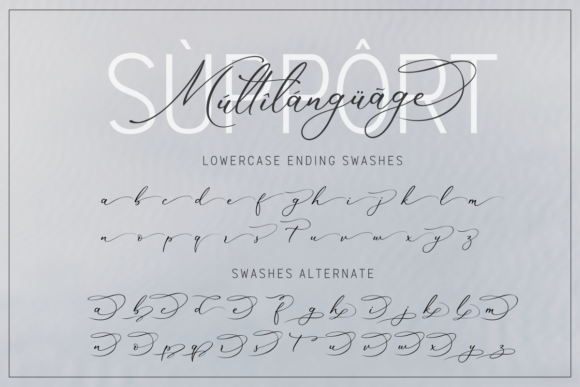 SÙPPÔRT
Múltîlángüãge
LOWERCASE ENDING SWASHES
a b c d e f g h i j k l m
n o p q r s t u v w x y z
SWASHES ALTERNATE
a b c d e f g h i j k l m
n o p q r s t u v w x y z